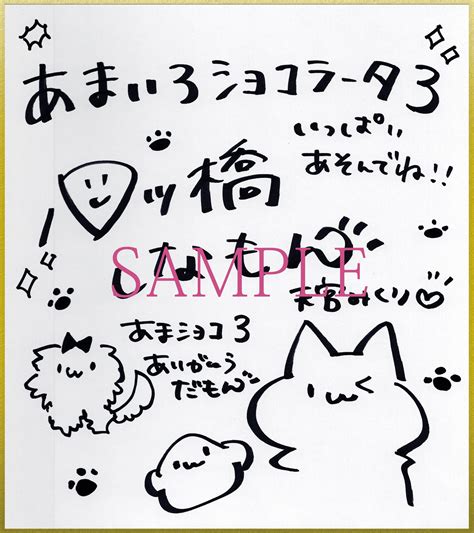 あまいろショコラータ3
いっぱい
あそんでね!!
四ツ橋
しなもん
SAMPLE
天宮みくり
あまショコ3
ありがとう
だもん